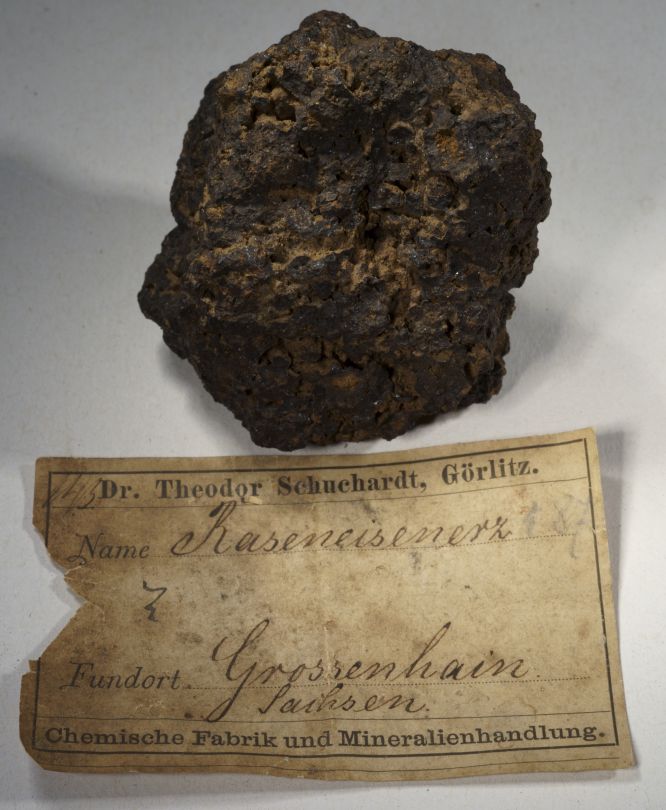 Dr. Theodor Schuchardt, Görlitz.
Name Raseneisenerz
Fundort Grossenhain
Sachsen.
Chemische Fabrik und Mineralienhandlung.